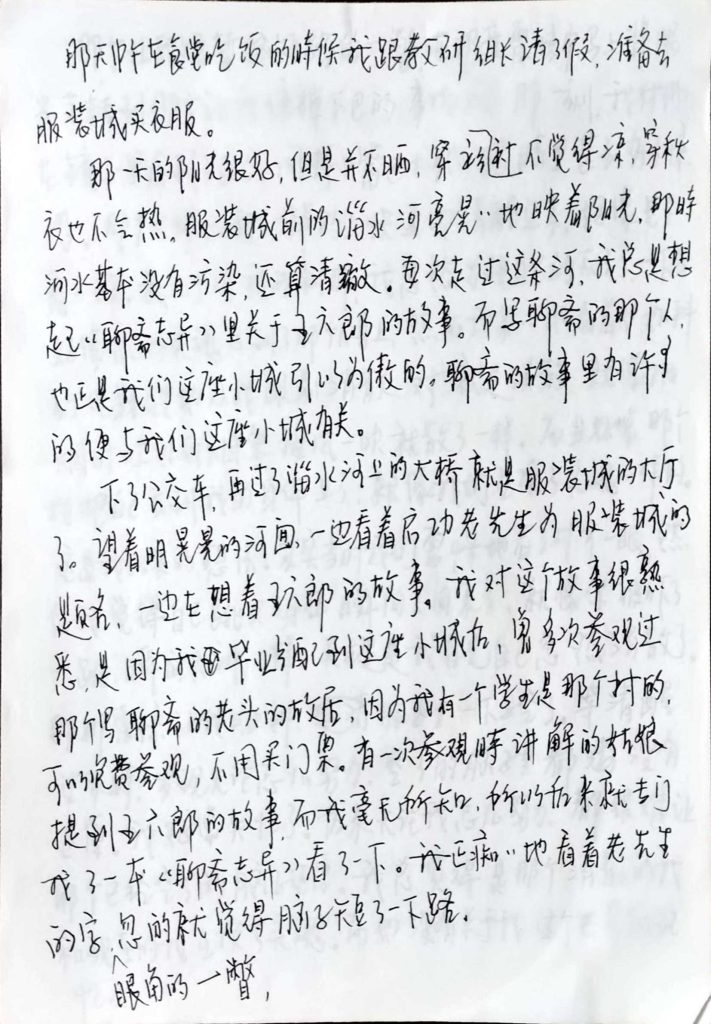 那天中午在食堂吃饭的時候我跟教研组长请了假，准备去
服装城买衣服。
那一天的阳光很好，但是并不晒，穿衬衫不觉得凉，穿秋
衣也不会热。服装城前的淄水河亮晃〃地映着阳光，那時
河水基本没有污染，还算清澈。每次走过这条河，我总是想
起《聊斋志异》里关于王六郎的故事。而写聊斋的那个人，
也正是我们这座小城引以为傲的。聊斋的故事里有许多
的便与我们这座小城有关。
下了公交车，再过了淄水河上的大桥就是服装城的大厅
了。望着明晃晃的河面，一边看着启功老先生为服装城的
题名，一边在想着王六郎的故事。我对这个故事很熟
悉，是因为我毕业分配到这座小城后，曾多次参观过
那个写聊斋的老头的故居，因为我有一个学生是那个村的，
可以免费参观，不用买门票。有一次参观時讲解的姑娘
提到王六郎的故事，而我毫无所知，所以后来就专门
找了一本《聊斋志异》看了一下。我正痴〃地看着老先生
的字，忽的就觉得脑子短了一下路。
眼角的一瞥，